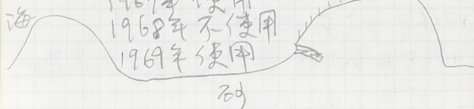 海
1968年 不使用
1969年 使用
砂